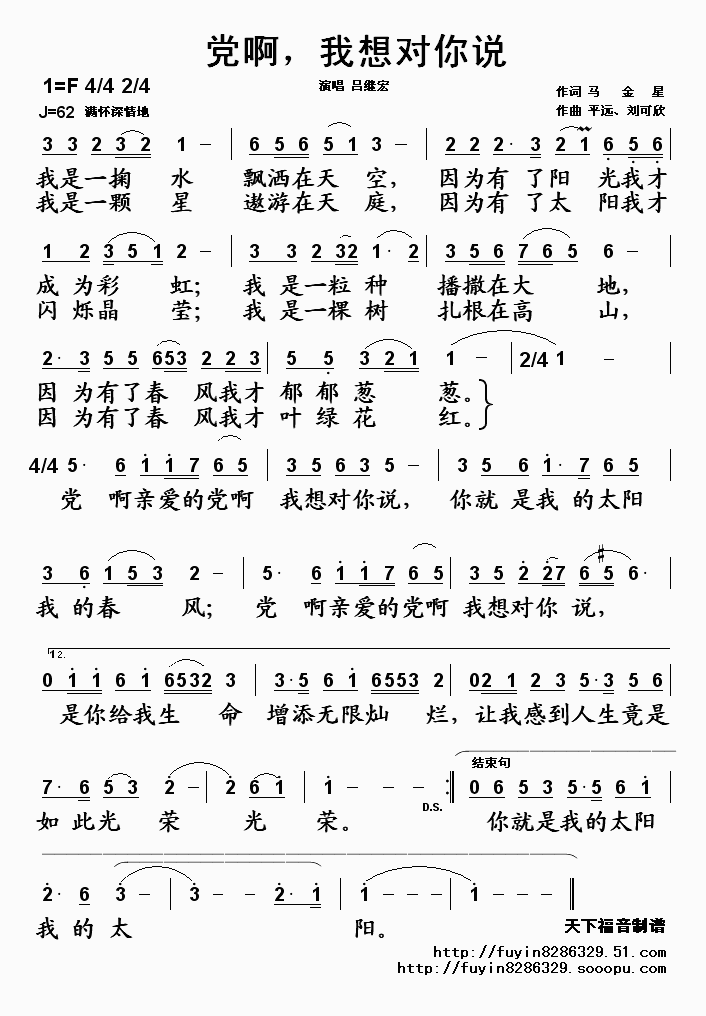 党啊，我想对你说
1=F 4/4 2/4
演唱 吕继宏
作词 马 金 星
J=62 满怀深情地
作曲 平远、刘可欣
3 3 2 3 2 1 – | 6 5 6 5 1 3 | 2 2 2· 3 2 1 6 5 6
我是一掬 水 飘洒在天 空， 因为有 了阳 光我才
我是一颗 星 遨游在天 庭， 因为有 了太 阳我才
1 2 3 5 1 2 – | 3 3 2 32 1· 2 | 3 5 6 7 6 5 6 –
成 为彩 虹； 我 是一粒 种 播撒在大 地，
闪 烁晶 莹； 我 是一棵 树 扎根在高 山，
2· 3 5 5 653 2 2 2 3 | 5 5 3 2 1 | 1 – | 2/4 1 –
因 为有了春 风我才 郁 郁 葱 葱。
因 为有了春 风我才 叶 绿 花 红。
4/4 5· 6 1 1 7 6 5 | 3 5 6 3 5 – | 3 5 6 1· 7 6 5
党 啊亲爱的党啊 我想对你说， 你就 是我 的太阳
3 6 1 5 3 2 – | 5· 6 1 1 7 6 5 | 3 5 2 27 6 #5 6·
我 的春 风； 党 啊亲爱的党啊 我想对你 说，
12.
0 1 1 6 1 6532 3 | 3·5 6 1 6553 2 | 02 1 2 3 5 3 5
是你给我生 命 增添无限灿 烂，让我感到人生竟是
结束句
7· 6 5 3 2 – | 2 6 1 | 1 – – – :‖ 0 6 5 3 5·5 6 1
D.S.
如 此光 荣 光 荣。 你就是我的太阳
2· 6 3 – | 3 – 2· 1 | 1 – – – | 1 – – ‖
我 的 太 阳。
天下福音制谱
http://fuyin8286329.51.com
http://fuyin8286329.sooopu.com